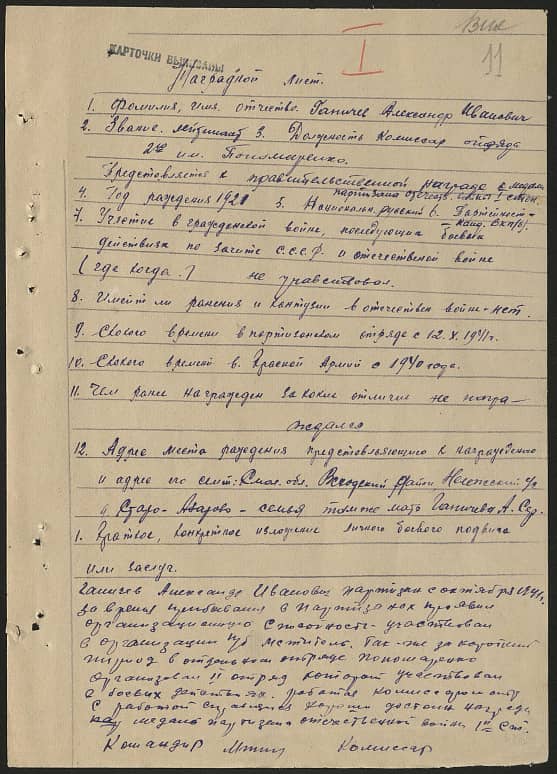 Вид
11
I
КАРТОЧКИ ВЫПИСАНЫ
Наградной лист.
1. Фамилия, имя, отчество. Ганичев Александр Иванович
2. Звание. лейтинант 3. Должность Комиссар отряда
2го им. Пономаренко.
Представляется к правительственной награде с медали
партизана отечеств. войны I степен.
4. Год раждения 1921 5. Национальн. русский 6. Партейност -
канд. вкп(б).
7. Участие в гражденской войне, последующих боевых
действиях по защите С.С.С.Р и отечественой войне
(где когда.) не учавствовал.
8. Имеит ли ранения и контузии в отечествен войне - нет.
9. Скокого времени в портизонском отряде с 12.X.1941г.
10. Скокого времени в. Красной Армии с 1940 года.
11. Чем ранее награжден за какие отличие не награ-
ждался
12. Адрес места раждения представляющего к награждению
и адрес его семи: Смол. обл. Всходский район
с. Старо-Азарово - семья там же мать Ганичева А.
1. Краткое, конкретное изложение личного боевого подвига
или заслуг.
Ганичев Александр Иванович партизан с октября 1941г.
за время прибывания в партизанах проявил
организационную способность - участвовал
в организации п/о мститель. Так-же за короткий
период в отдельном отряде Пономаренко
организовал II отряд который участвовал
в боевых действиях. работая комиссаром отр
с работой справился хорошо достоин награда
медали партизана отечественной войны 1ой ст.
Командир Комиссар